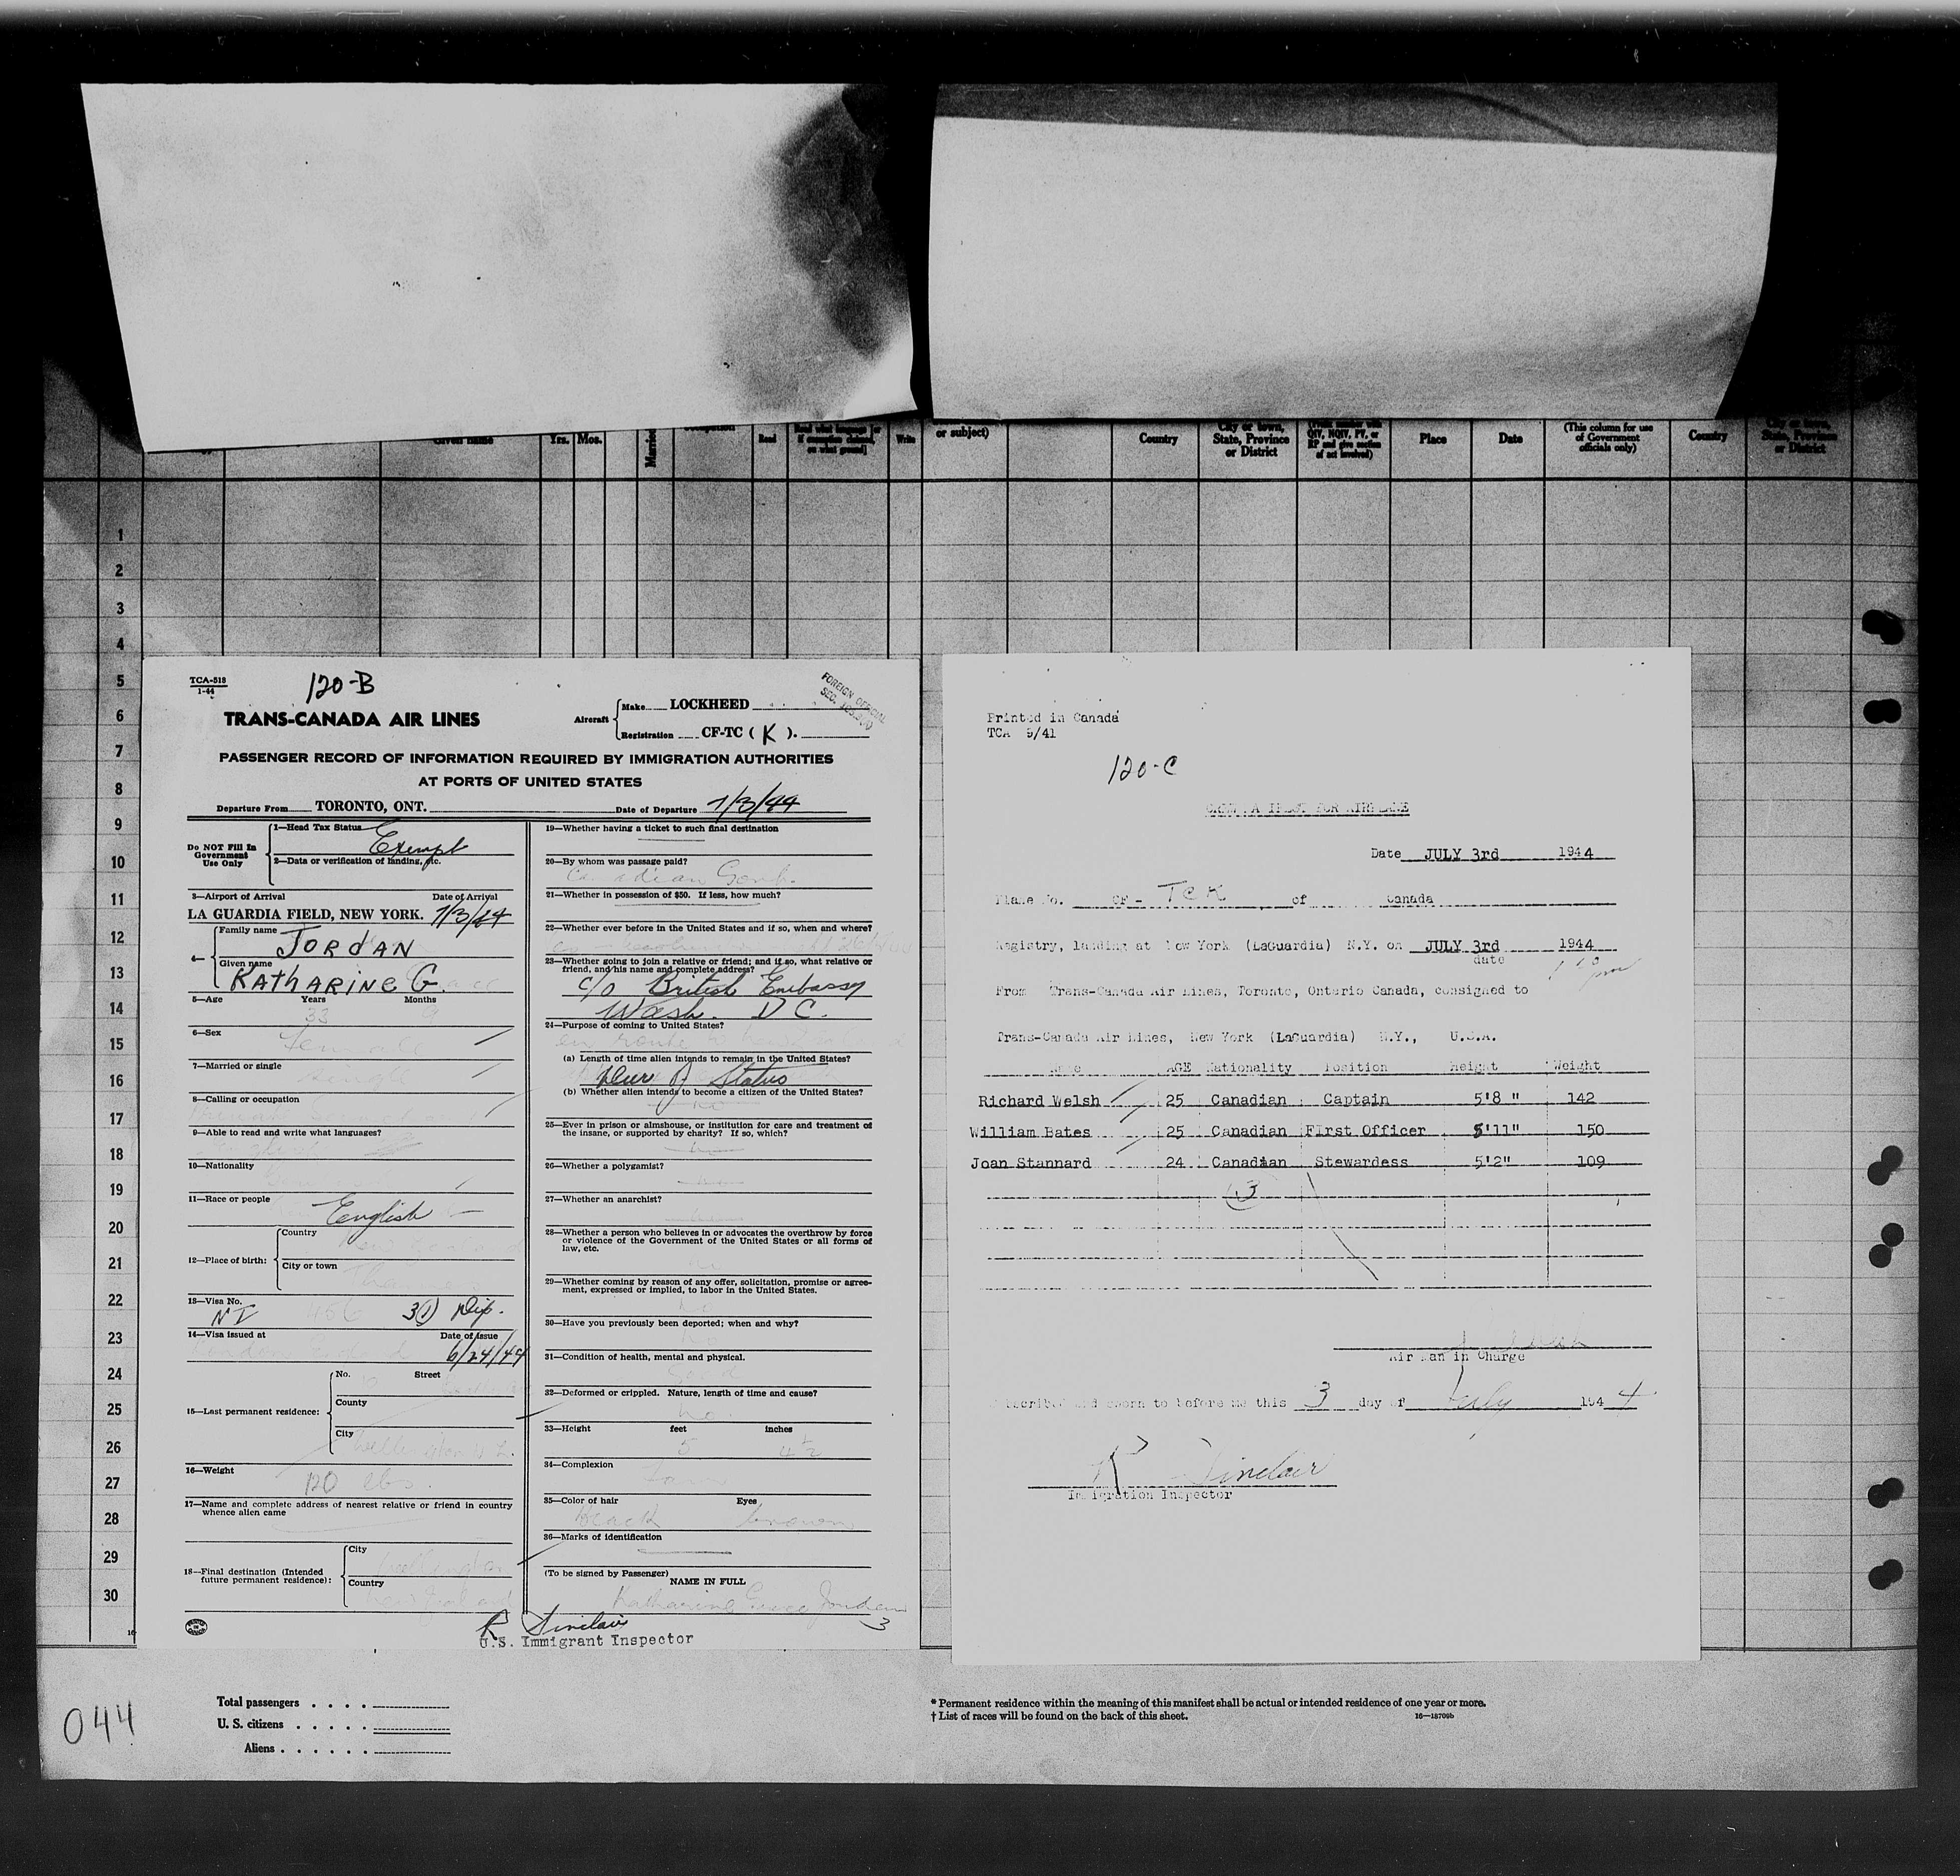 Given name
Yrs.
Mos.
Married
Read
Write
or subject)
Country
City or town, State, Province or District
QIV, NQIV, PV, or RP and give section of act involved)
Place
Date
(This column for use of Government officials only)
Country
City or town, State, Province or District
1
2
3
4
5
6
7
8
9
10
11
12
13
14
15
16
17
18
19
20
21
22
23
24
25
26
27
28
29
30
TCA-518
1-44
120-B
FOREIGN OFFICIAL
TRANS-CANADA AIR LINES
Aircraft
Make LOCKHEED
Registration CF-TC ( K ).
PASSENGER RECORD OF INFORMATION REQUIRED BY IMMIGRATION AUTHORITIES
AT PORTS OF UNITED STATES
Departure From TORONTO, ONT. Date of Departure 7/3/44
Do NOT Fill In
Government
Use Only
1—Head Tax Status
Exempt
2—Data or verification of landing, etc.
3—Airport of Arrival Date of Arrival
LA GUARDIA FIELD, NEW YORK. 7/3/44
4—
Family name
JORDAN
Given name
KATHARINE G.
5—Age Years Months
33
6—Sex
Female
7—Married or single
8—Calling or occupation
9—Able to read and write what languages?
10—Nationality
11—Race or people
English
12—Place of birth:
Country
City or town
13—Visa No.
NI 456 3(1) Dip.
14—Visa issued at Date of Issue
6/24/44
15—Last permanent residence:
No. Street
County
City
16—Weight
120 lbs.
17—Name and complete address of nearest relative or friend in country
whence alien came
18—Final destination (Intended
future permanent residence):
City
Country
19—Whether having a ticket to such final destination
20—By whom was passage paid?
Canadian Govt.
21—Whether in possession of $50. If less, how much?
22—Whether ever before in the United States and if so, when and where?
23—Whether going to join a relative or friend; and if so, what relative or
friend, and his name and complete address?
c/o British Embassy
Wash. D C.
24—Purpose of coming to United States?
en route
(a) Length of time alien intends to remain in the United States?
Dur of Status
(b) Whether alien intends to become a citizen of the United States?
25—Ever in prison or almshouse, or institution for care and treatment of
the insane, or supported by charity? If so, which?
26—Whether a polygamist?
27—Whether an anarchist?
28—Whether a person who believes in or advocates the overthrow by force
or violence of the Government of the United States or all forms of
law, etc.
29—Whether coming by reason of any offer, solicitation, promise or agree-
ment, expressed or implied, to labor in the United States.
30—Have you previously been deported; when and why?
31—Condition of health, mental and physical.
32—Deformed or crippled. Nature, length of time and cause?
no.
33—Height feet inches
5 4½
34—Complexion
35—Color of hair Eyes
black brown
36—Marks of identification
(To be signed by Passenger)
NAME IN FULL
Katharine Grace Jordan
3
R Sinclair
U.S. Immigrant Inspector
Printed in Canada
TCA 9/41
120-C
Date JULY 3rd 1944
Plane No. CF- TCK of Canada
Registry, landing at New York (LaGuardia) N.Y. on JULY 3rd 1944
date
From Trans-Canada Air Lines, Toronto, Ontario Canada, consigned to
Trans-Canada Air Lines, New York (LaGuardia) N.Y., U.S.A.
Name AGE Nationality Position Height Weight
Richard Welsh 25 Canadian Captain 5'8 " 142
William Bates 25 Canadian FIrst Officer 5'11" 150
Joan Stannard 24 Canadian Stewardess 5'2" 109
3
Air Man in Charge
Subscribed and sworn to before me this 3 day of July 1944
R Sinclair
Immigration Inspector
044
Total passengers
U. S. citizens
Aliens
* Permanent residence within the meaning of this manifest shall be actual or intended residence of one year or more.
† List of races will be found on the back of this sheet.
16—18709b